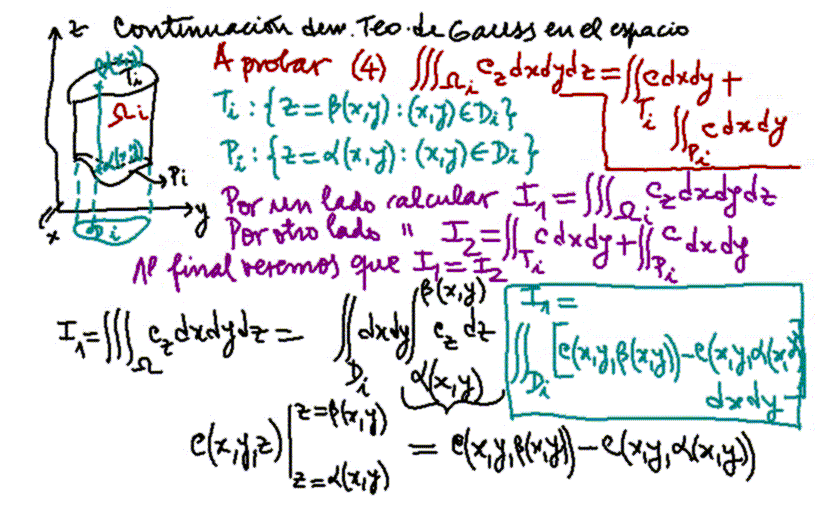 Continuación dem. Teo. de Gauss en el espacio
z
β(x,y)
Ti
Ωi
α(x,y)
Pi
Di
x
y
A probar (4) ∭Ωi c_z dxdydz = ∬Ti c dxdy +
∬Pi c dxdy
Ti : {z = β(x,y) : (x,y) ∈ Di}
Pi : {z = α(x,y) : (x,y) ∈ Di}
Por un lado calcular I₁ = ∭Ωi c_z dxdydz
Por otro lado " I₂ = ∬Ti c dxdy + ∬Pi c dxdy
Al final veremos que I₁ = I₂
I₁ = ∭Ω c_z dxdydz = ∬Di dxdy ∫α(x,y)^β(x,y) c_z dz
I₁ =
∬Di [c(x,y,β(x,y)) - c(x,y,α(x,y))]
dxdy
c(x,y,z) | z=β(x,y) z=α(x,y) = c(x,y,β(x,y)) - c(x,y,α(x,y))